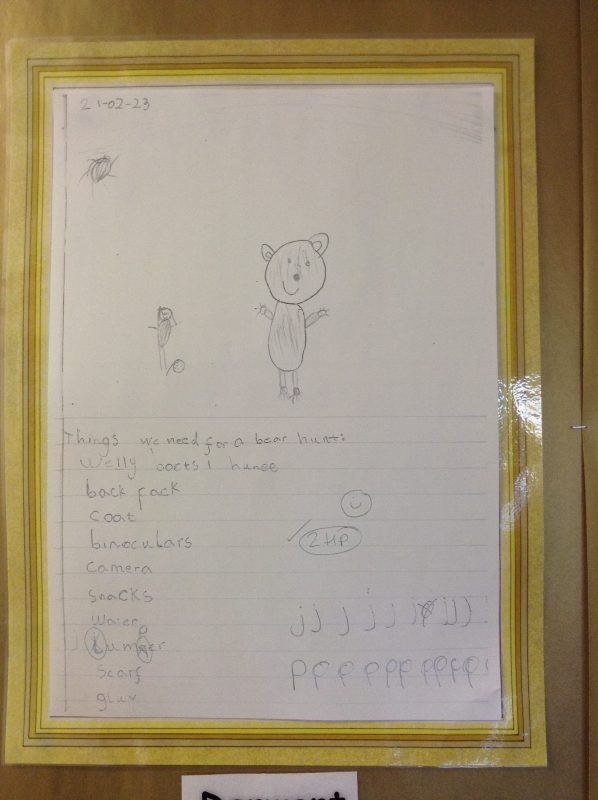 21-02-23
Things we need for a bear hunt:
Welly boots 1 hunge
back pack
Coat
binoculars
Camera
Snacks
Water
Jumper
Scarf
gluv
2HP
j j j j j j j j j
p p p p p p p p p p
Derwent